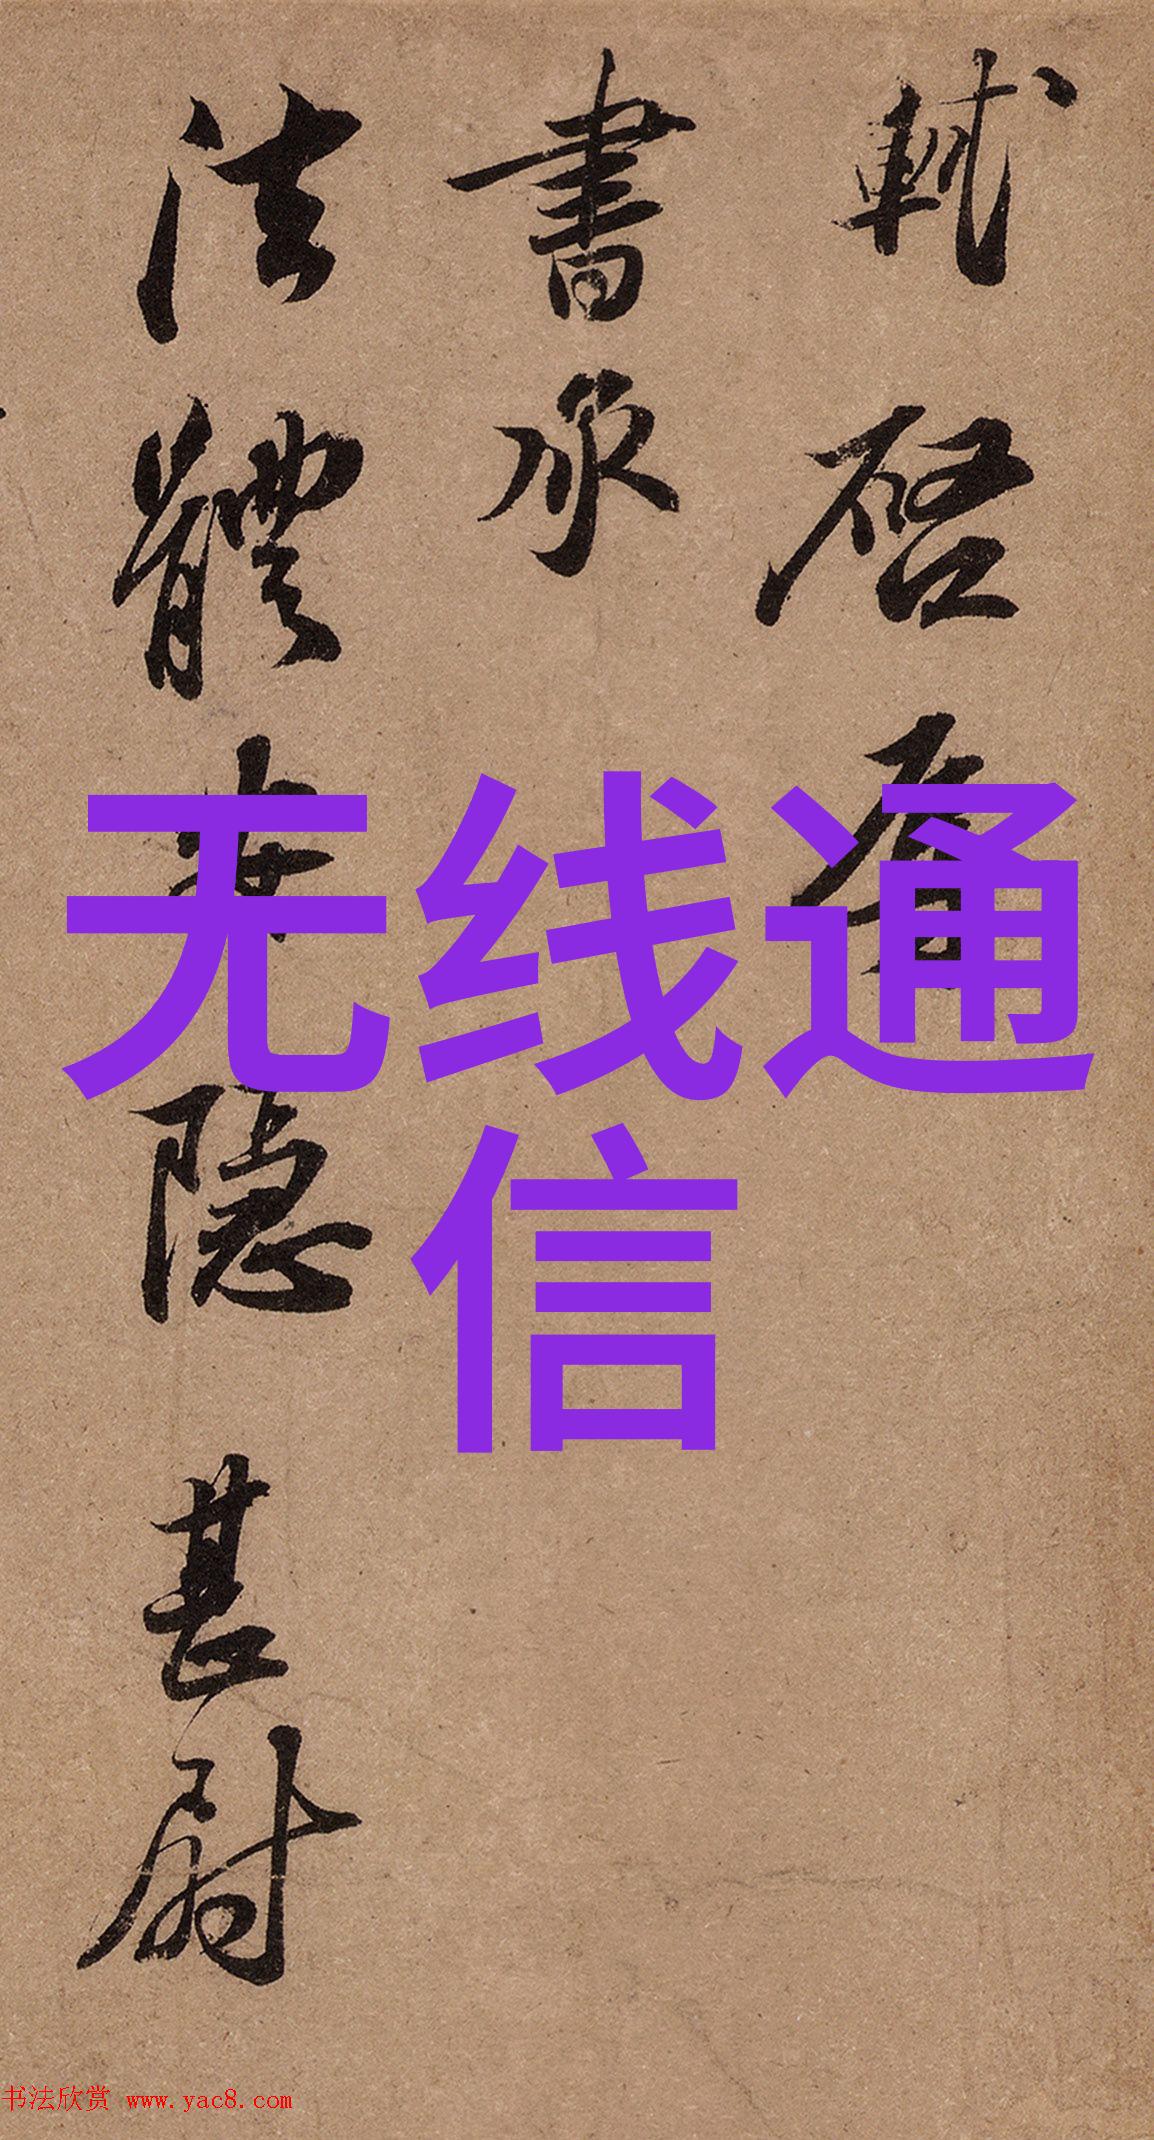 軾啓辱
書承
法體安隱甚尉
无线通
信
书法欣赏 www.yac8.com